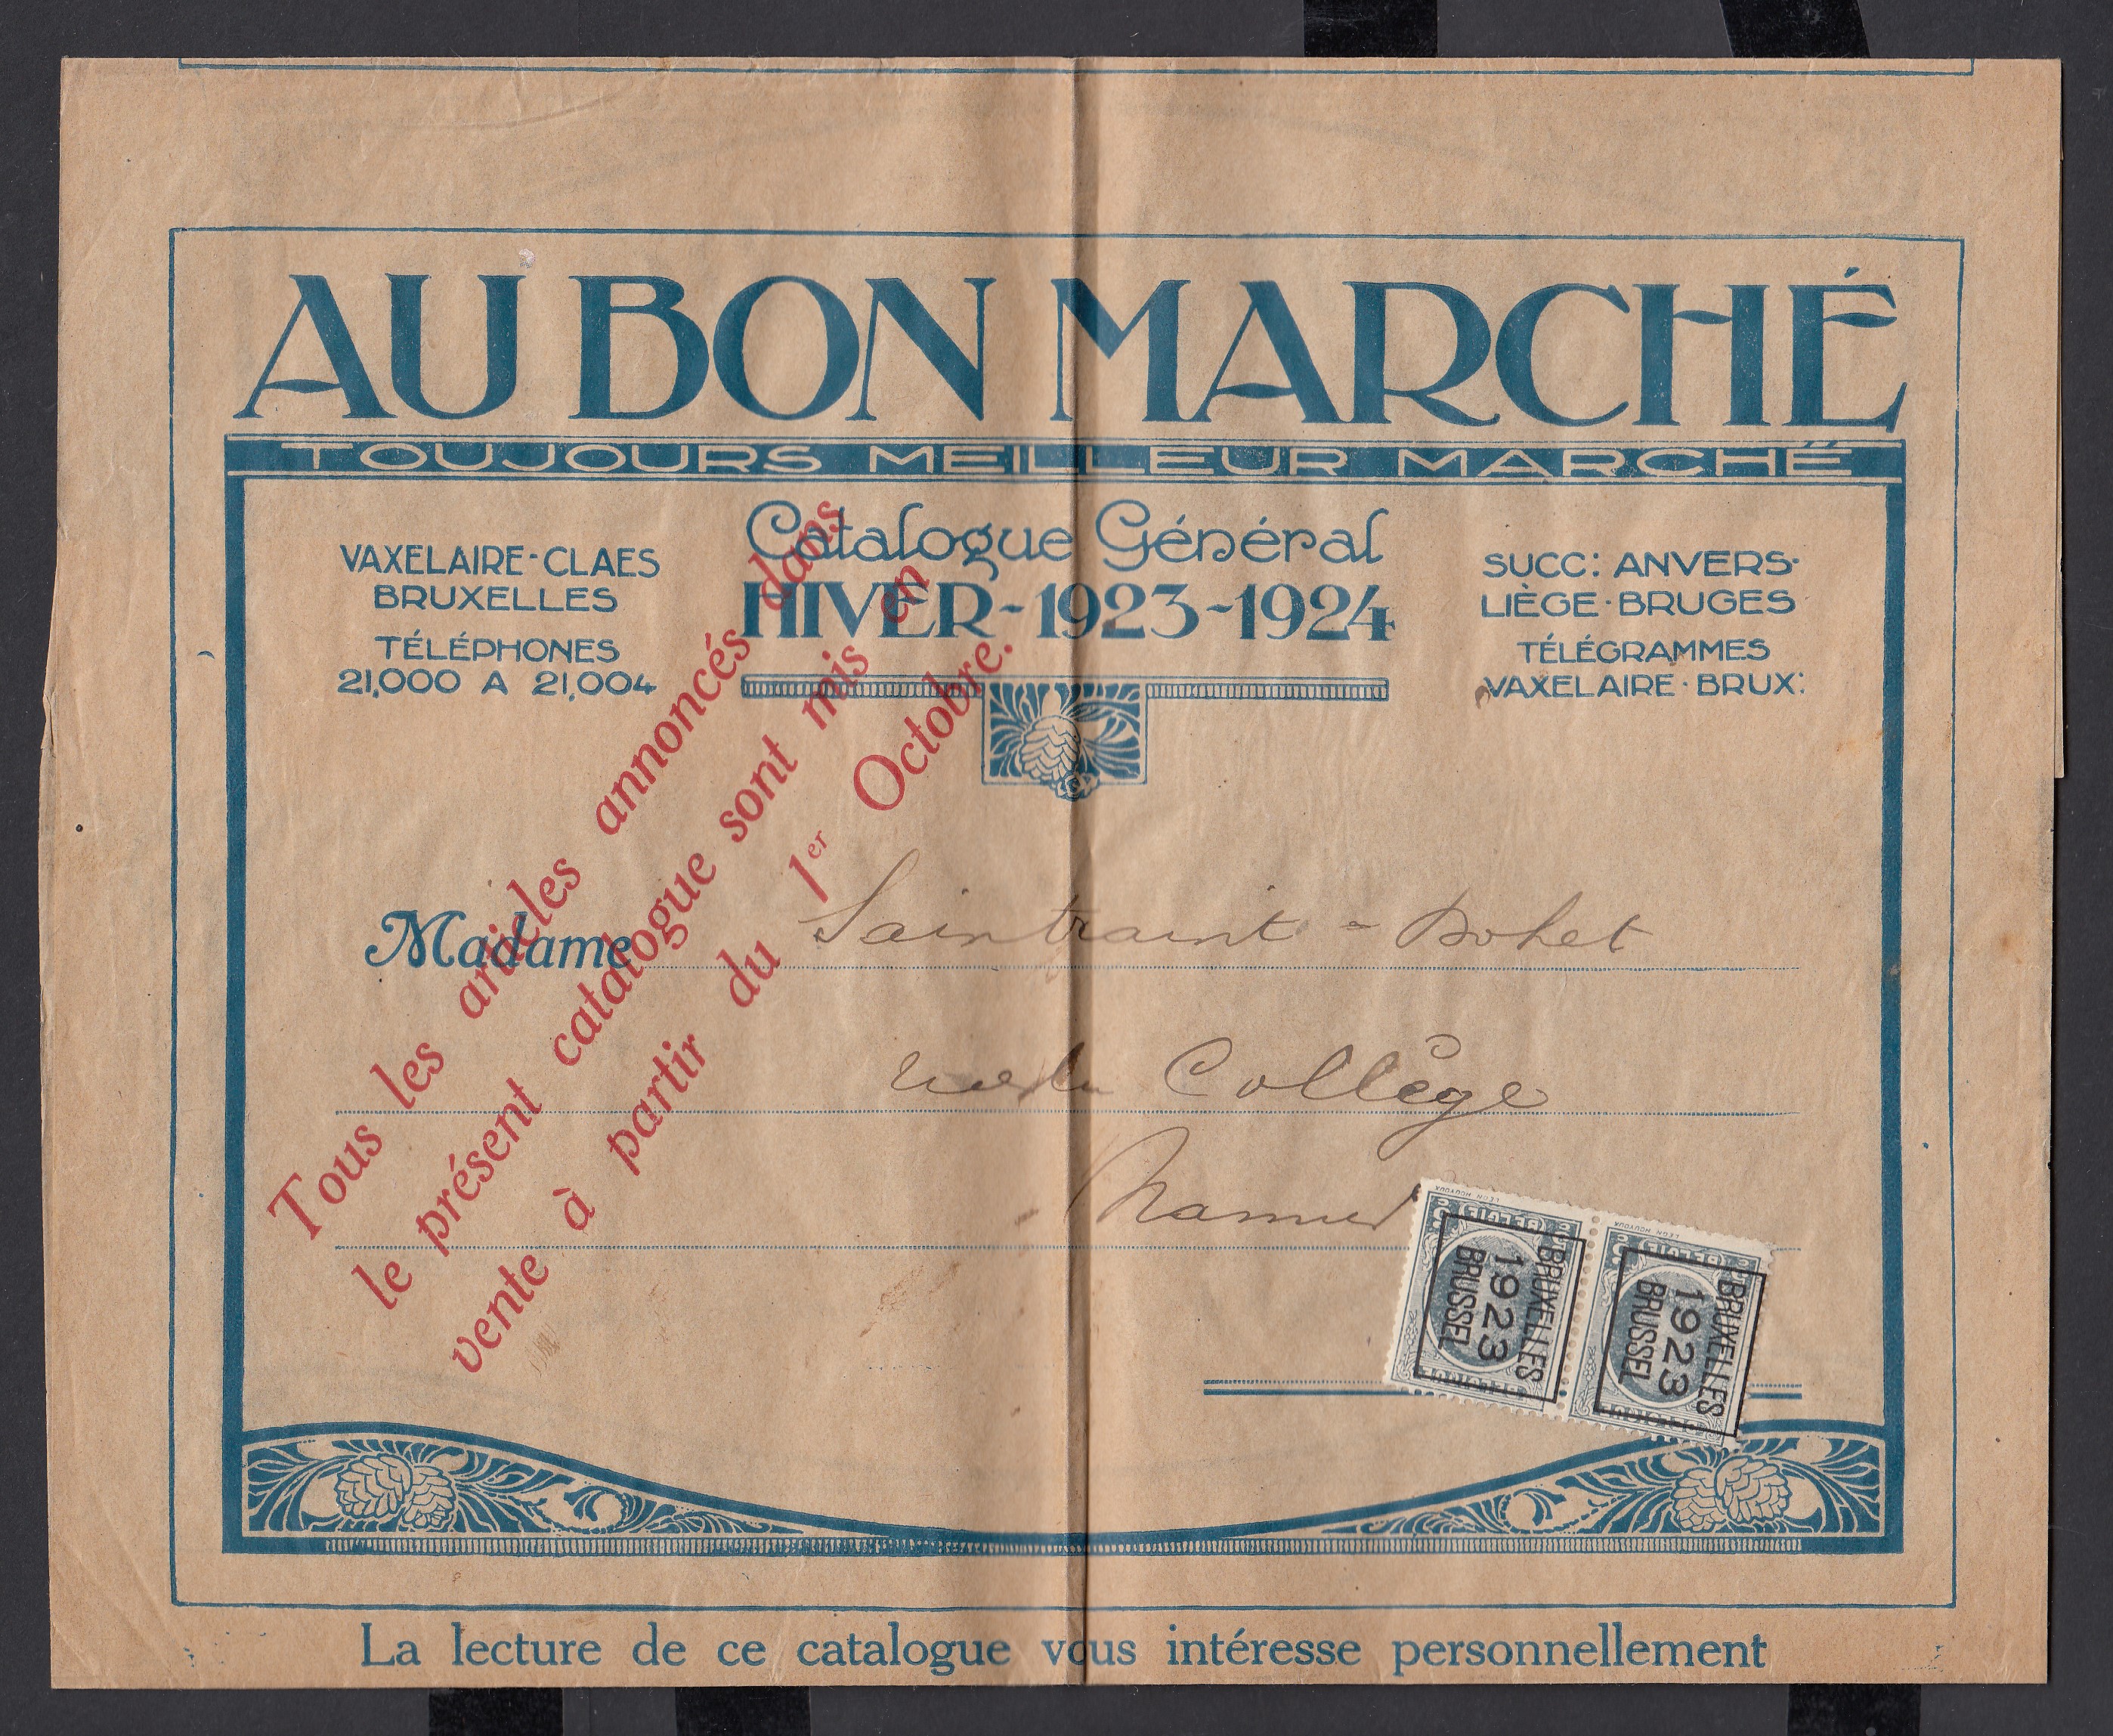 AU BON MARCHÉ
TOUJOURS MEILLEUR MARCHÉ
VAXELAIRE-CLAES
BRUXELLES
TÉLÉPHONES
21,000 A 21,004
Catalogue Général
HIVER-1923-1924
SUCC: ANVERS-
LIÈGE-BRUGES
TÉLÉGRAMMES
VAXELAIRE-BRUX:
Tous les articles annoncés dans
le présent catalogue sont mis en
vente à partir du 1er Octobre.
Madame Saintraint - Bohet
rue du Collège
Namur
BRUXELLES
1923
BRUSSEL
BRUXELLES
1923
BRUSSEL
La lecture de ce catalogue vous intéresse personnellement